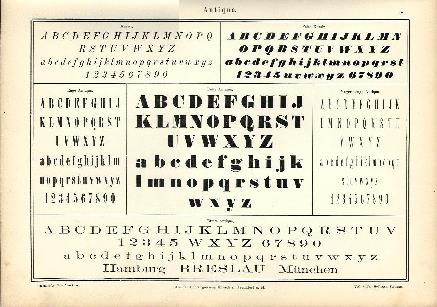 Antiqua.
ABCDEFGHIJKLMNOPQ
RSTUVWXYZ
abcdefghijklmnopqrstuvwxyz
1234567890
ABCDEFGHIJKLMN
OPQRSTUVWXYZ
abcdefghijklmnopqrstu
vwxyz
1234567890
ABCDEFGHIJ
KLMNOPQRST
UVWXYZ
abcdefghijklm
nopqrstuvwxyz
1234567890
ABCDEFGHIJ
KLMNOPQRST
UVWXYZ
abcdefghijk
lmnopqrstuv
wxyz
ABCDEFGHIJ
KLMNOPQRST
UVWXYZ
1234567890
ABCDEFGHIJKLMNOPQRSTUV
12345 WXYZ 67890
abcdefghijklmnopqrstuvwxyz
Hamburg BRESLAU München